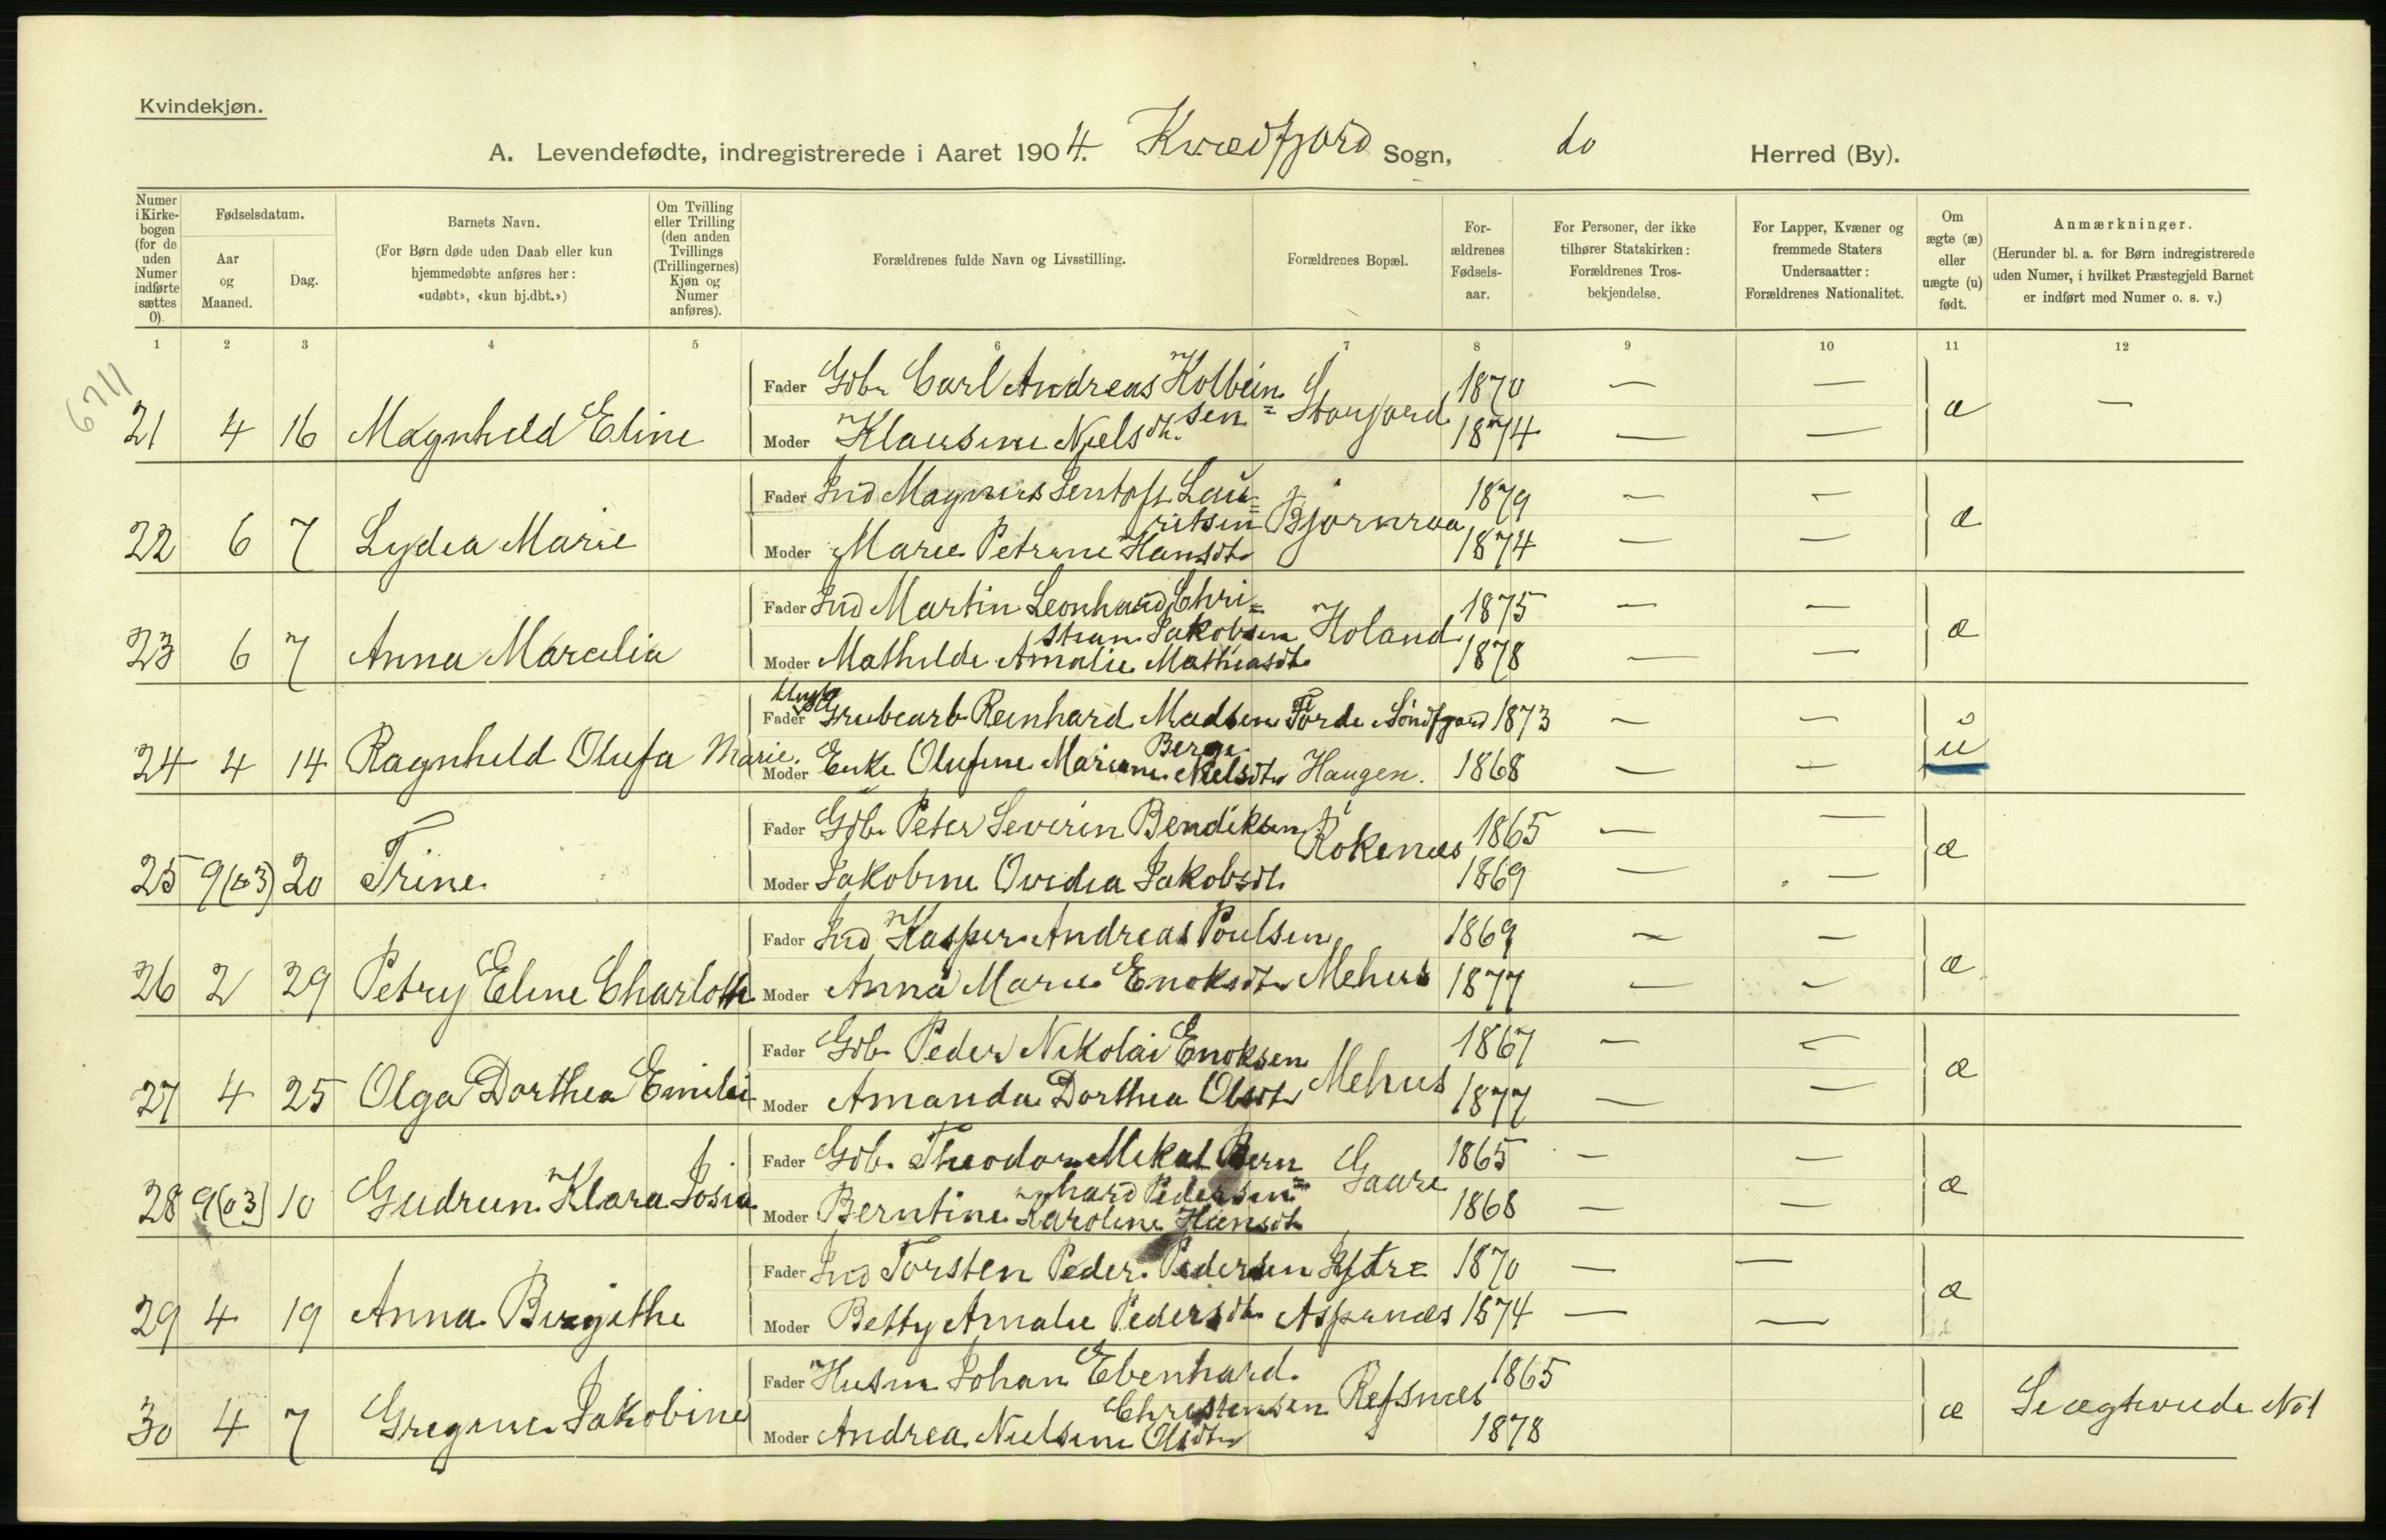 Kvindekjøn.
A. Levendefødte, indregistrerede i Aaret 1904. Kvædfjord Sogn, do Herred (By).
Numer i Kirkebogen (for de uden Numer indførte sættes 0).
Fødselsdatum.
Aar og Maaned.
Dag.
Barnets Navn.
(For Børn døde uden Daab eller kun hjemmedøbte anføres her: «udøbt», «kun hj.dbt.»)
Om Tvilling eller Trilling (den anden Tvillings (Trillingernes) Kjøn og Numer anføres).
Forældrenes fulde Navn og Livsstilling.
Forældrenes Bopæl.
Forældrenes Fødselsaar.
For Personer, der ikke tilhører Statskirken: Forældrenes Trosbekjendelse.
For Lapper, Kvæner og fremmede Staters Undersaatter: Forældrenes Nationalitet.
Om ægte (æ) eller uægte (u) født.
Anmærkninger.
(Herunder bl. a. for Børn indregistrerede uden Numer, i hvilket Præstegjeld Barnet er indført med Numer o. s. v.)
1 2 3 4 5 6 7 8 9 10 11 12
6711
Fader Gdb. Carl Andreas Kolbein= 1870 — —
21 4 16 Magnhild Eline sen Storjord æ —
Moder Klausine Nielsdtr. 1874 — —
Fader Ind Magnus Lau= 1879 — —
22 6 7 Lydia Marie ritsen Bjørnraa æ
Moder Marie Petrine Hansdtr 1874 — —
Fader Ind Martin Leonhard Chri= 1875 — —
23 6 7 Anna Marcelia stian Jakobsen Holand æ
Moder Mathilde Amalie Mathiasdtr 1878 — —
Ungk
Fader Grubearb Reinhard Madsen Førde Søndfjord 1873 — —
24 4 14 Ragnhild Olufa Marie. Berge u
Moder Enke Olufine Marianne Nielsdtr Haugen. 1868 — —
Fader Gdb. Peter Severin Bendiksen 1865 — —
25 9(03) 20 Trine Røkenes æ
Moder Jakobine Ovidia Jakobsdt. 1869 — —
Fader Ind Kasper Andreas Poulsen 1869 — —
26 2 29 Petry Eline Charlotte æ
Moder Anna Marie Enoksdtr Mehus 1877 — —
Fader Gdb. Peder Nikolai Enoksen 1867 — —
27 4 25 Olga Dorthea Emilie Mehus æ
Moder Amanda Dorthea Olsdtr 1877 — —
Fader Gdb. Theodor Mikal Bern= 1865 — —
28 9(03) 10 Gudrun Klara Josia hard Pedersen Gaare æ
Moder Berntine Karoline Hansdtr 1868 — —
Fader Ind Torsten Peder Pedersen Ystre= 1870 — —
29 4 19 Anna Birgithe æ
Moder Betty Amalie Pedersdtr Aspenæs 1874 — —
Fader Husm Johan Ebenhard 1865
30 4 7 Gregine Jakobine Christensen Refsnæs æ No 1
Moder Andrea Nielsine Olsdtr 1878